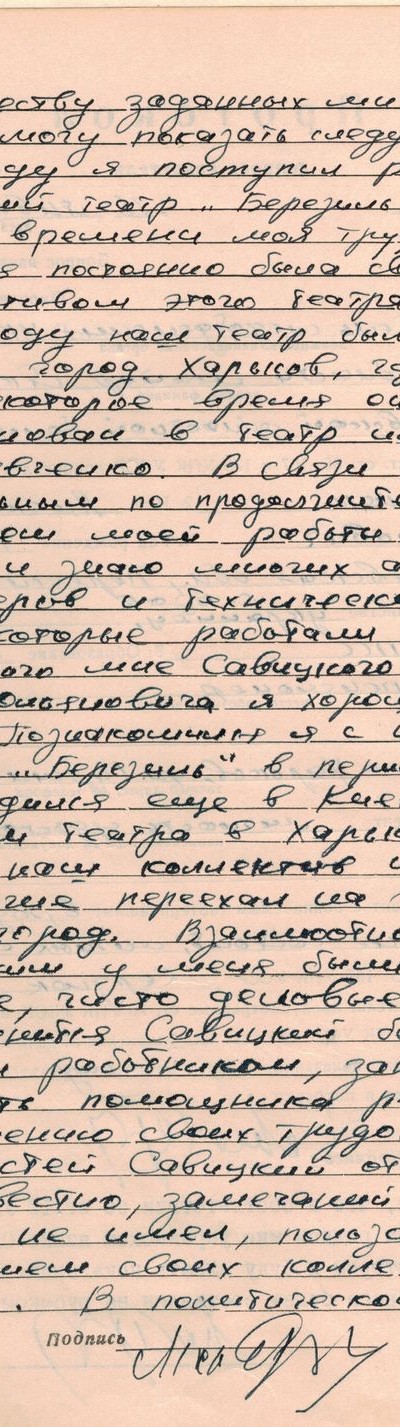 еству заданных ми
могу показать следу
ду я поступил р
ий театр „Березиль
времени моя тру
я постоянно была св
тивом этого театра
оду наш театр был
город Харьков, гд
которое время ос
нован в театр и
вченко. В связи
ьным по продолжите
ем моей работы
и знаю многих а
еров и техническ
которые работали
ого мне Савицкого
ольяновича я хорош
Познакомился я с
„Березиль" в пери
дился еще в Кие
м театра в Харьк
наш коллектив и
гие переехал на
город. Взаимоотно
ким у меня были
е, чисто деловые
ечится Савицкий б
и работником, за
ть помощника р
ению своих трудо
стей Савицкий от
вестно, замечаний
не имел, польз
ием своих колле
. В политической
Подпись